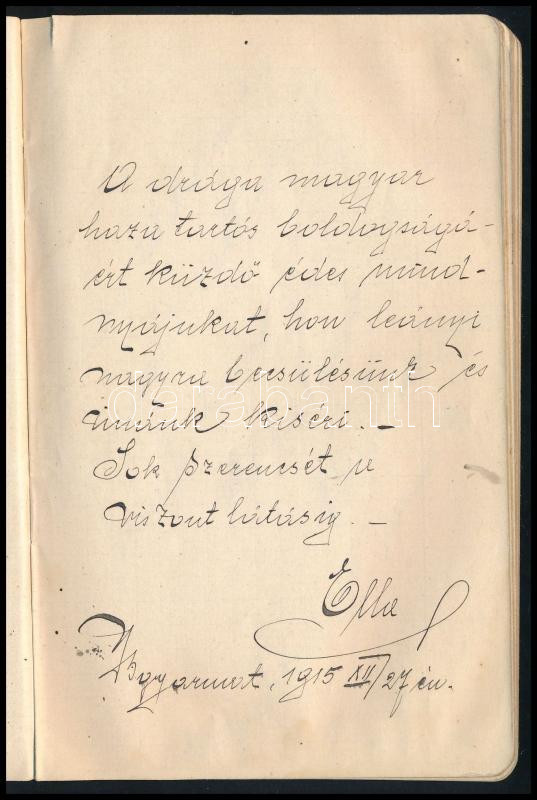 A drága magyar
haza tartós boldogságá-
ért küzdő édes mind-
nyájukat, hon leányi
nagyra becsülésünk és
imánk kiséri. —
Sok szerencsét a
viszont látásig. —
Ella
B gyarmat, 1915 XII/27 én.
darabanth